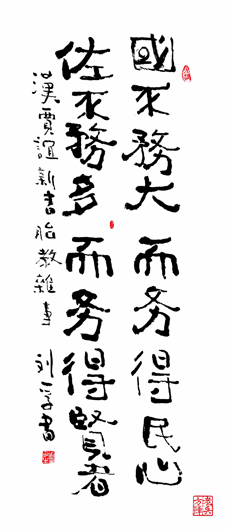 國不務大而务得民心
佐不務多而务得賢者
漢賈誼新書胎教雜事 刘孚書